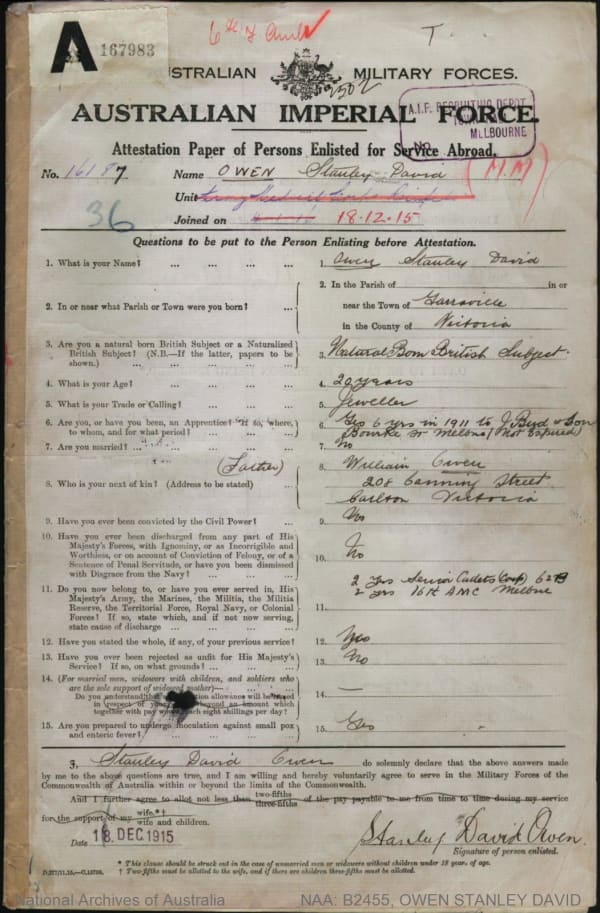 A 167983
6th F Amb
T.
AUSTRALIAN MILITARY FORCES.
2502
AUSTRALIAN IMPERIAL FORCE.
A.I.F. RECRUITING DEPOT
MELBOURNE
No.
Attestation Paper of Persons Enlisted for Service Abroad.
No. 16187 Name OWEN Stanley David (M.M)
Unit
36
Joined on 18.12.15
Questions to be put to the Person Enlisting before Attestation.
1. What is your Name? ... ... ... ... 1. Owen Stanley David
2. In or near what Parish or Town were you born? ... 2. In the Parish of in or
near the Town of Yarraville
in the County of Victoria
3. Are you a natural born British Subject or a Naturalized
British Subject? (N.B.—If the latter, papers to be
shown.) ... ... ... ... 3. Natural Born British Subject.
4. What is your Age? ... ... ... ... 4. 20 years
5. What is your Trade or Calling? ... ... ... 5. Jeweller
6. Are you, or have you been, an Apprentice? If so, where,
to whom, and for what period? ... ... ... 6. Yes 6 yrs in 1911 to J Bird & Son
Bourke St Melbne (Not Expired)
7. Are you married? ... ... ... 7. No
(Father)
8. Who is your next of kin? (Address to be stated) ... 8. William Owen
208 Canning Street
Carlton Victoria
9. Have you ever been convicted by the Civil Power? ... 9. No
10. Have you ever been discharged from any part of His
Majesty's Forces, with Ignominy, or as Incorrigible and
Worthless, or on account of Conviction of Felony, or of a
Sentence of Penal Servitude, or have you been dismissed
with Disgrace from the Navy? ... ... ... 10. No
11. Do you now belong to, or have you ever served in, His
Majesty's Army, the Marines, the Militia, the Militia
Reserve, the Territorial Force, Royal Navy, or Colonial
Forces? If so, state which, and if not now serving,
state cause of discharge ... ... ... 11. 2 Yrs Senior Cadets (Corp) 62B
2 yrs 16th AMC Melbne
12. Have you stated the whole, if any, of your previous service? 12. Yes
13. Have you ever been rejected as unfit for His Majesty's
Service? If so, on what grounds? ... ... 13. No
14. (For married men, widowers with children, and soldiers who
are the sole support of widowed mother)—
Do you understand that no separation allowance will be issued
in respect of your beyond an amount which
together with pay would reach eight shillings per day? ... 14. —
15. Are you prepared to undergo inoculation against small pox
and enteric fever? ... ... ... 15. Yes
I, Stanley David Owen do solemnly declare that the above answers made
by me to the above questions are true, and I am willing and hereby voluntarily agree to serve in the Military Forces of the
Commonwealth of Australia within or beyond the limits of the Commonwealth.
And I further agree to allot not less than two-fifths three-fifths of the pay payable to me from time to time during my service
for the support of my wife.*† wife and children.
Date 18 DEC 1915
Stanley David Owen.
Signature of person enlisted.
* This clause should be struck out in the case of unmarried men or widowers without children under 18 years of age.
† Two-fifths must be allotted to the wife, and if there are children three-fifths must be allotted.
D.277/11.15.—C.15708.
National Archives of Australia NAA: B2455, OWEN STANLEY DAVID